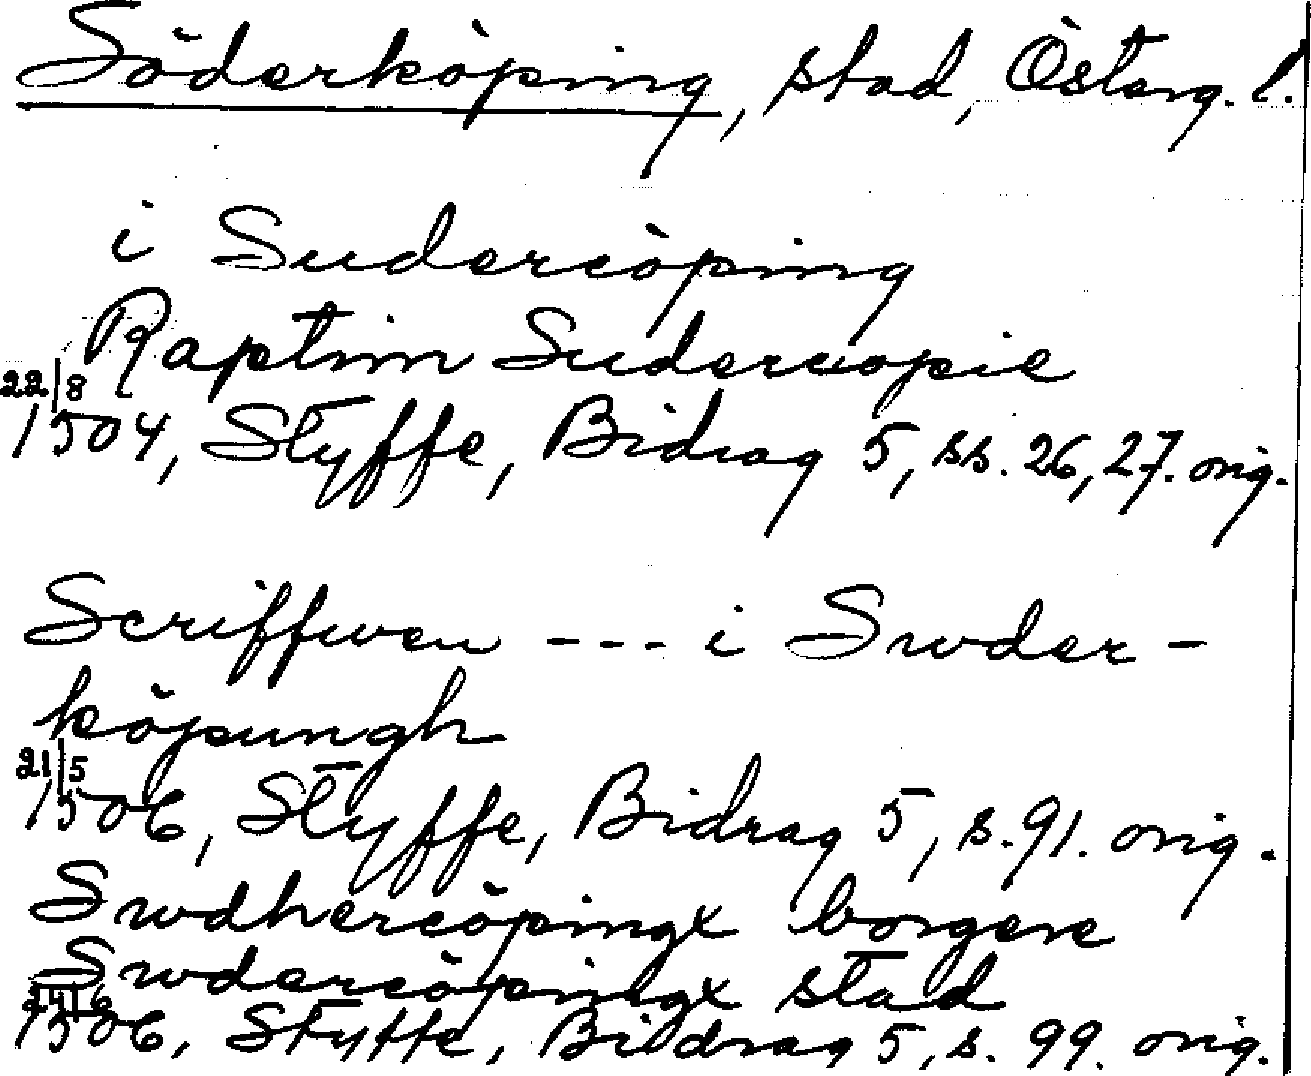 Söderköping, stad, Österg. l.
i Sudercöping
Raptim Sudercopie
22/8
1504, Styffe, Bidrag 5, ss. 26, 27. orig.
Scriffwen --- i Swder-
köpungh
21/5
1506, Styffe, Bidrag 5, s. 91. orig.
Swdhercöpingx borgere
Swdercöpingx stad
1506, Styffe, Bidrag 5, s. 99. orig.